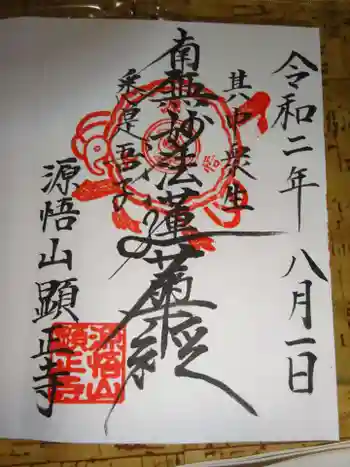 令和二年 八月一日
其中衆生
南無妙法蓮華経
悉是吾子
源悟山顕正寺
源悟山
顕正寺